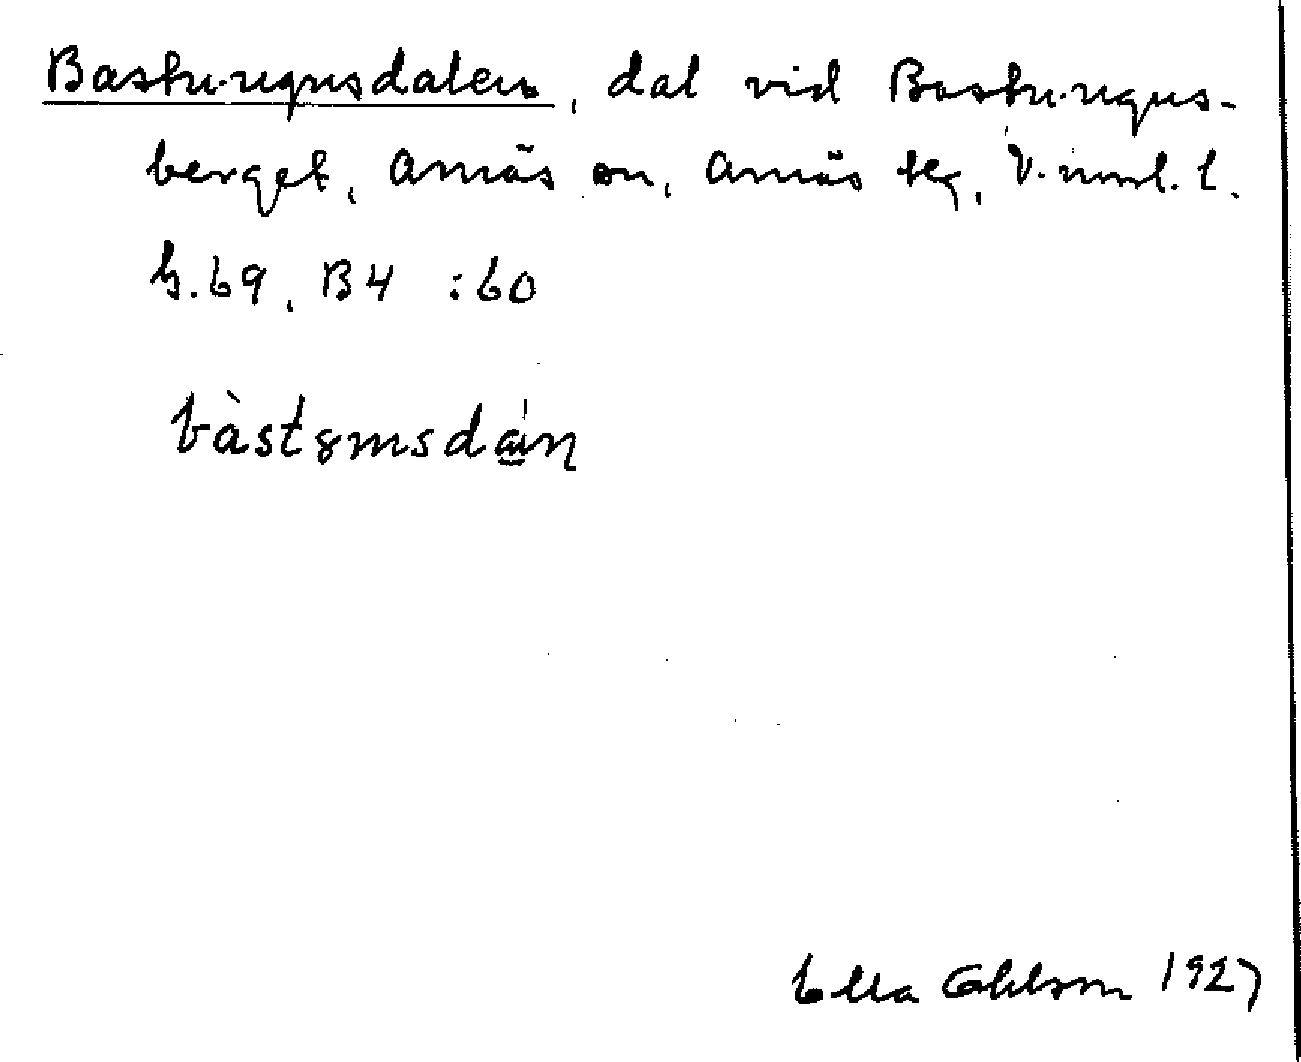 Bastu-ugnsdalen, dal vid Bastu-ugns-
berget, Arnäs sn, Arnäs tg, V.nrml. l.
h.69, B4 :60
bàstɞmsdán
Ohlson 1927